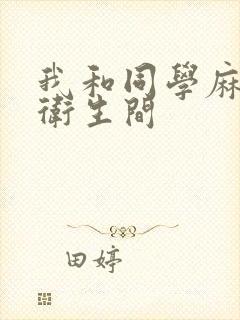 我和同學麻
衛生間
田婷